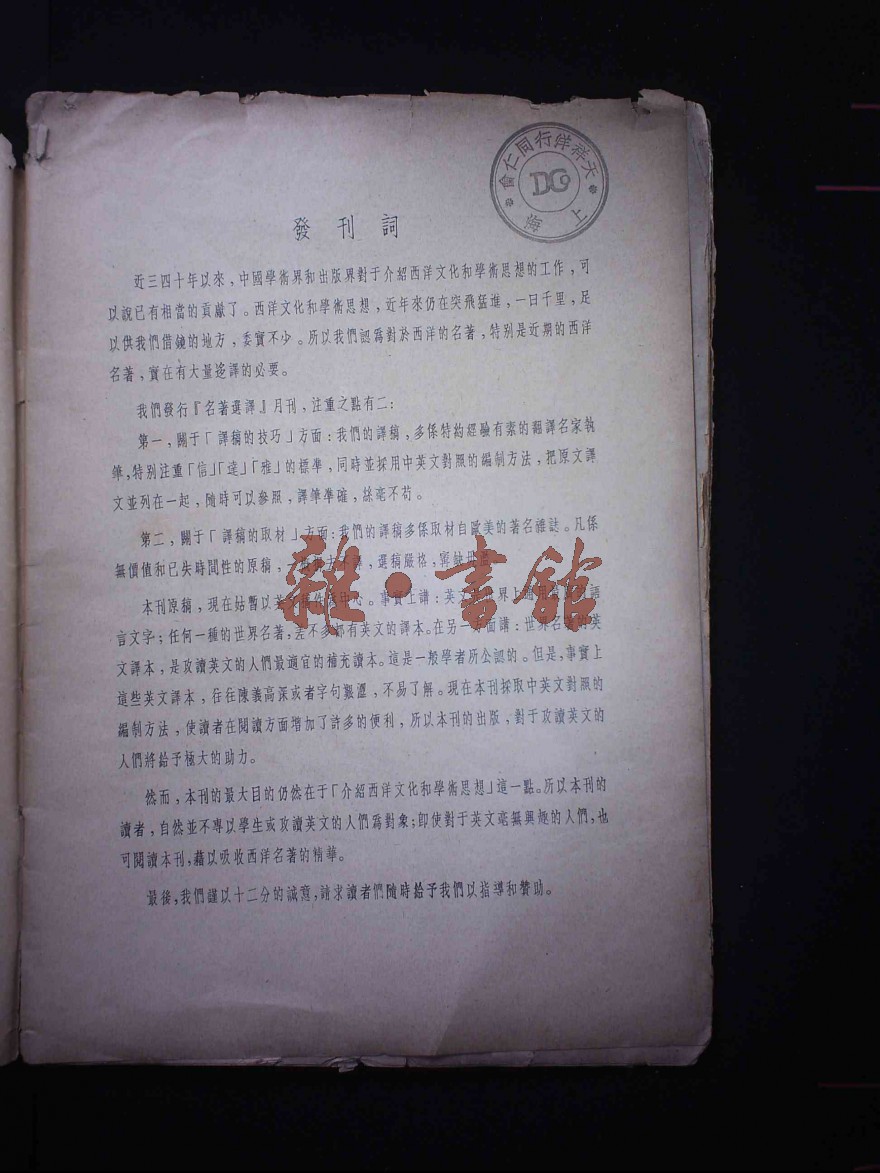 天祥洋行同仁會
DG
上海
發刊詞
近三四十年以來，中國學術界和出版界對于介紹西洋文化和學術思想的工作，可
以說已有相當的貢獻了。西洋文化和學術思想，近年來仍在突飛猛進，一日千里，足
以供我們借鏡的地方，委實不少。所以我們認爲對於西洋的名著，特别是近期的西洋
名著，實在有大量迻譯的必要。
我們發行『名著選譯』月刊，注重之點有二：
第一，關于「譯稿的技巧」方面：我們的譯稿，多係特約經驗有素的翻譯名家執
筆，特别注重「信」「達」「雅」的標準，同時並採用中英文對照的編制方法，把原文譯
文並列在一起，隨時可以參照，譯筆準確，絲毫不苟。
第二，關于「譯稿的取材」方面：我們的譯稿多係取材自歐美的著名雜誌。凡係
無價值和已失時間性的原稿，一 不譯，選稿嚴格，寧缺
本刊原稿，現在姑暫以英文 作 中心。事實上講：英文 界上通用 語
言文字；任何一種的世界名著，差不多都有英文的譯本。在另一方面講：世界名著的英
文譯本，是攻讀英文的人們最適宜的補充讀本。這是一般學者所公認的。但是，事實上
這些英文譯本，往往陳義高深或者字句艱澀，不易了解。現在本刊採取中英文對照的
編制方法，使讀者在閱讀方面增加了許多的便利，所以本刊的出版，對于攻讀英文的
人們將給予極大的助力。
然而，本刊的最大目的仍然在于「介紹西洋文化和學術思想」這一點。所以本刊的
讀者，自然並不專以學生或攻讀英文的人們爲對象；即使對于英文毫無興趣的人們，也
可閱讀本刊，藉以吸收西洋名著的精華。
最後，我們謹以十二分的誠意，請求讀者們隨時給予我們以指導和贊助。
雜·書館